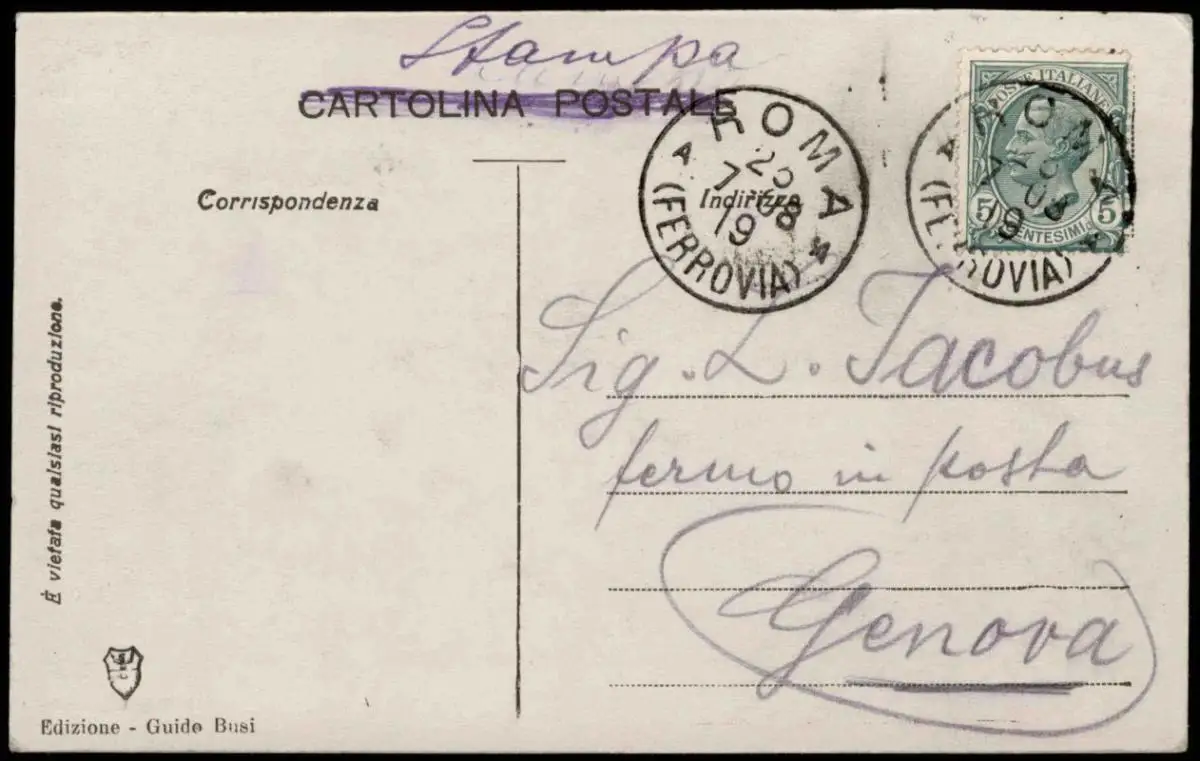 Stampa
CARTOLINA POSTALE
POSTE ITALIANE
5 CENTESIMI 5
ROMA
7 08
19
(FERROVIA)
ROMA
7 08
19
(FERROVIA)
Corrispondenza
Indirizzo
Sig. L. Jacobus
fermo in posta
Genova
È vietata qualsiasi riproduzione.
Edizione - Guido Busi